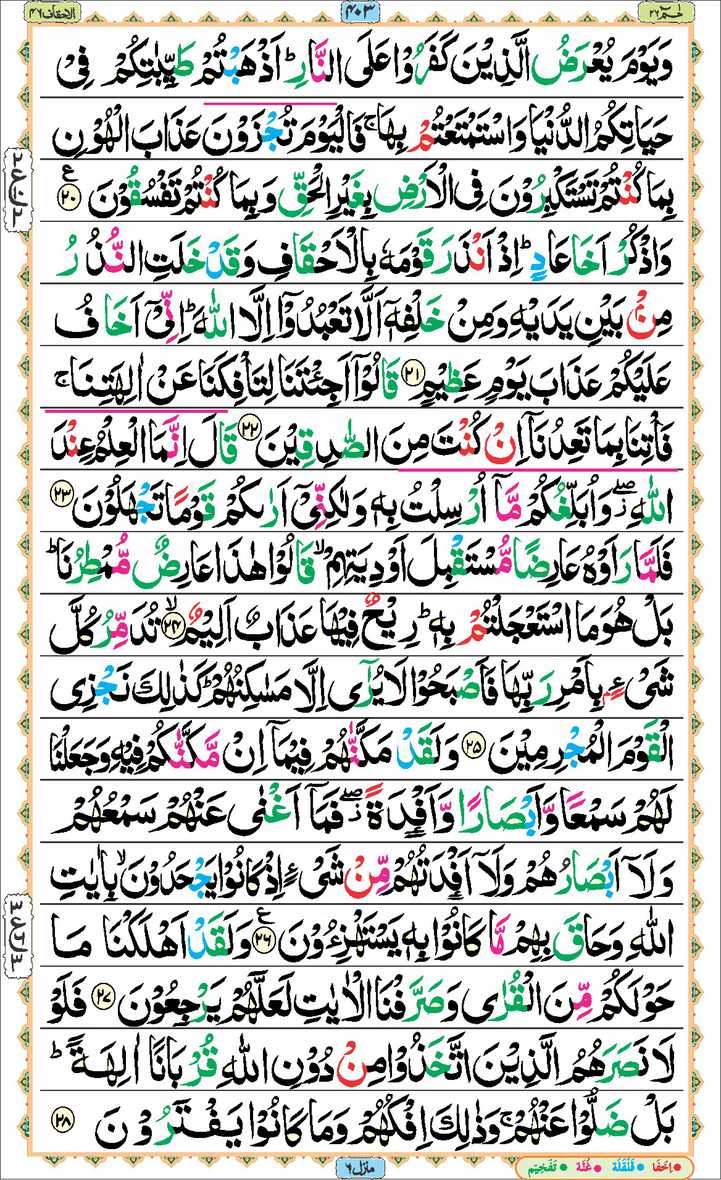 حٰمٓ ٢٦
٤٠٣
الاحقاف ٤٦
وَيَوْمَ يُعْرَضُ الَّذِيْنَ كَفَرُوْا عَلَى النَّارِ ؕ اَذْهَبْتُمْ طَيِّبٰتِكُمْ فِىْ
حَيَاتِكُمُ الدُّنْيَا وَاسْتَمْتَعْتُمْ بِهَا ۚ فَالْيَوْمَ تُجْزَوْنَ عَذَابَ الْهُوْنِ
بِمَا كُنْتُمْ تَسْتَكْبِرُوْنَ فِى الْاَرْضِ بِغَيْرِ الْحَقِّ وَبِمَا كُنْتُمْ تَفْسُقُوْنَ ع ٢٠
وَاذْكُرْ اَخَا عَادٍ ؕ اِذْ اَنْذَرَ قَوْمَهٗ بِالْاَحْقَافِ وَقَدْ خَلَتِ النُّذُرُ
مِنْۢ بَيْنِ يَدَيْهِ وَمِنْ خَلْفِهٖۤ اَلَّا تَعْبُدُوْۤا اِلَّا اللّٰهَ ؕ اِنِّىْۤ اَخَافُ
عَلَيْكُمْ عَذَابَ يَوْمٍ عَظِيْمٍ ٢١ قَالُوْۤا اَجِئْتَنَا لِتَاْفِكَنَا عَنْ اٰلِهَتِنَا ۚ
فَاْتِنَا بِمَا تَعِدُنَاۤ اِنْ كُنْتَ مِنَ الصّٰدِقِيْنَ ٢٢ قَالَ اِنَّمَا الْعِلْمُ عِنْدَ
اللّٰهِ ۖ وَاُبَلِّغُكُمْ مَّاۤ اُرْسِلْتُ بِهٖ وَلٰكِنِّىْۤ اَرٰىكُمْ قَوْمًا تَجْهَلُوْنَ ٢٣
فَلَمَّا رَاَوْهُ عَارِضًا مُّسْتَقْبِلَ اَوْدِيَتِهِمْ ۙ قَالُوْا هٰذَا عَارِضٌ مُّمْطِرُنَا ؕ
بَلْ هُوَ مَا اسْتَعْجَلْتُمْ بِهٖ ؕ رِيْحٌ فِيْهَا عَذَابٌ اَلِيْمٌ ۙ ٢٤ تُدَمِّرُ كُلَّ
شَىْءٍۢ بِاَمْرِ رَبِّهَا فَاَصْبَحُوْا لَا يُرٰٓى اِلَّا مَسٰكِنُهُمْ ؕ كَذٰلِكَ نَجْزِى
الْقَوْمَ الْمُجْرِمِيْنَ ٢٥ وَلَقَدْ مَكَّنّٰهُمْ فِيْمَاۤ اِنْ مَّكَّنّٰكُمْ فِيْهِ وَجَعَلْنَا
لَهُمْ سَمْعًا وَّاَبْصَارًا وَّاَفْـِٕدَةً ۖ فَمَاۤ اَغْنٰى عَنْهُمْ سَمْعُهُمْ
وَلَاۤ اَبْصَارُهُمْ وَلَاۤ اَفْـِٕدَتُهُمْ مِّنْ شَىْءٍ اِذْ كَانُوْا يَجْحَدُوْنَ ۙ بِاٰيٰتِ
اللّٰهِ وَحَاقَ بِهِمْ مَّا كَانُوْا بِهٖ يَسْتَهْزِءُوْنَ ع ٢٦ وَلَقَدْ اَهْلَكْنَا مَا
حَوْلَكُمْ مِّنَ الْقُرٰى وَصَرَّفْنَا الْاٰيٰتِ لَعَلَّهُمْ يَرْجِعُوْنَ ٢٧ فَلَوْ
لَا نَصَرَهُمُ الَّذِيْنَ اتَّخَذُوْا مِنْ دُوْنِ اللّٰهِ قُرْبَانًا اٰلِهَةً ؕ
بَلْ ضَلُّوْا عَنْهُمْ ۚ وَذٰلِكَ اِفْكُهُمْ وَمَا كَانُوْا يَفْتَرُوْنَ ٢٨
منزل ٦
اِخفَا قَلْقَلَة غُنَّة تَفْخِيْم